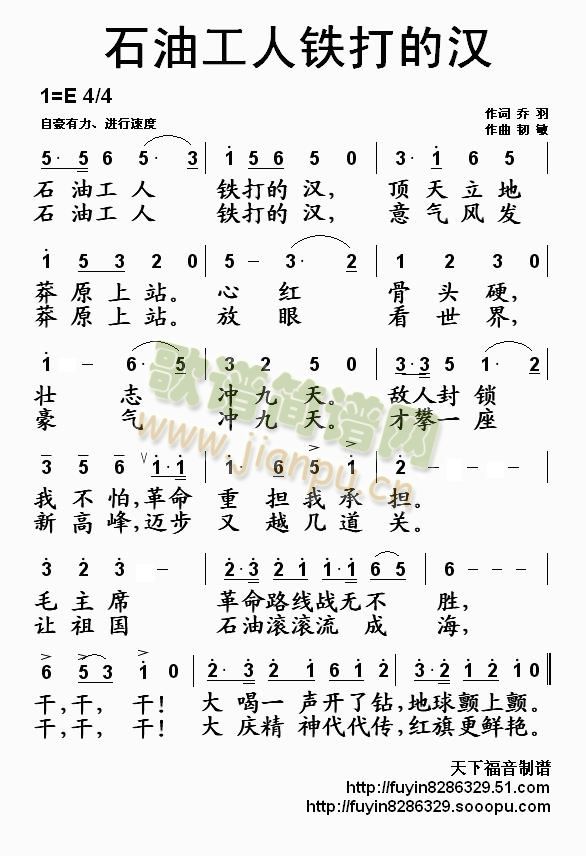 石油工人铁打的汉
1=E 4/4
作词 乔 羽
自豪有力、进行速度
作曲 韧 敏
5· 5 6 5· 3 | i 5 6 5 0 | 3· i 6 5
石 油 工 人 铁 打 的 汉， 顶 天 立 地
石 油 工 人 铁 打 的 汉， 意 气 风 发
i 5 3 2 0 | 5 – 3· 2 | 1 2 3 0
莽 原 上 站。 心 红 骨 头 硬，
莽 原 上 站。 放 眼 看 世 界，
i – 6· 5 | 3 2 5 0 | 3·3 5 1· 2
壮 志 冲 九 天。 敌 人 封 锁
豪 气 冲 九 天。 才 攀 一 座
3 5 6 i·i | i· 6 5 i | 2 – –
我 不 怕，革 命 重 担 我 承 担。
新 高 峰，迈 步 又 越 几 道 关。
3 2 3 – | 2·3 2 1 1·2 6 5 | 6 – – 0
毛 主 席 革 命 路 线 战 无 不 胜，
让 祖 国 石 油 滚 滚 流 成 海，
6 5 3 i 0 | 2·3 2 i 6 5 | 3·2 i 2 i 0
干，干， 干！ 大 喝 一 声 开 了 钻，地 球 颤 上 颤。
干，干， 干！ 大 庆 精 神 代 代 传，红 旗 更 鲜 艳。
歌谱简谱网
www.jianpu.cn
天下福音制谱
http://fuyin8286329.51.com
http://fuyin8286329.sooopu.com